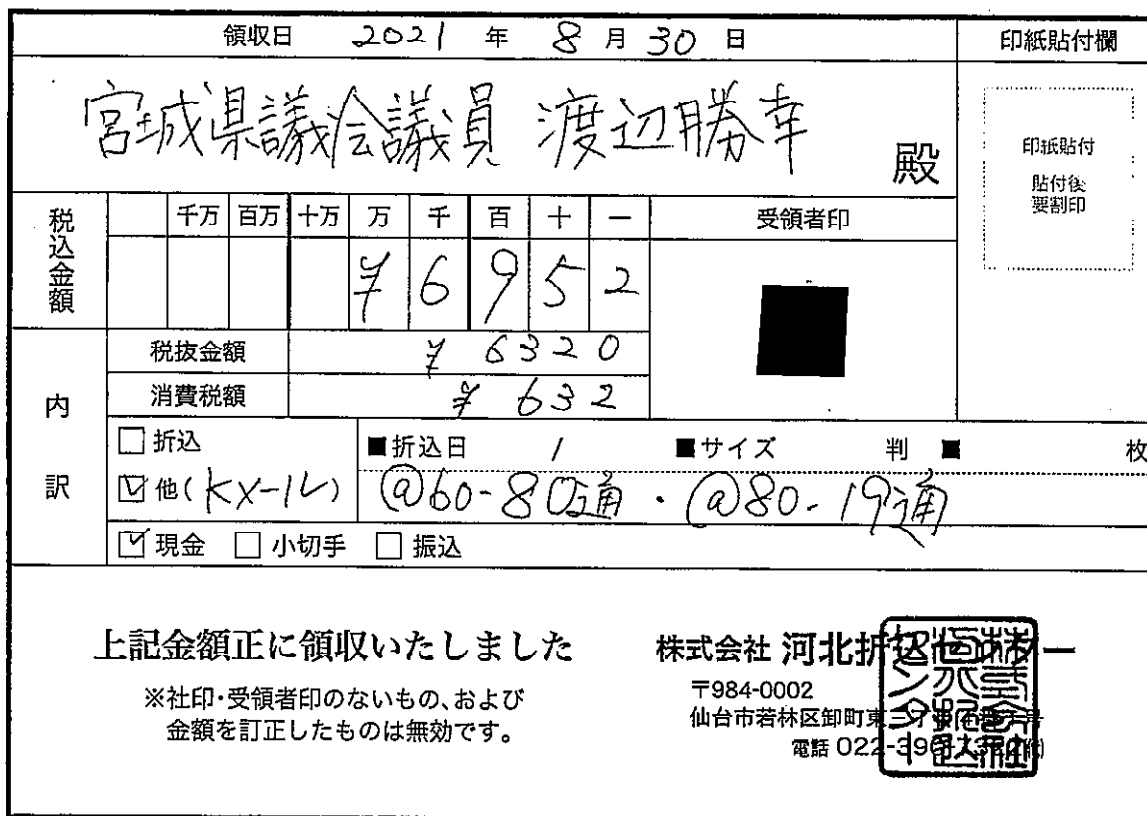 領収日 2021 年 8 月 30 日
印紙貼付欄
宮城県議会議員 渡辺勝幸 殿
印紙貼付
貼付後
要割印
税込金額
千万 百万 十万 万 千 百 十 一
受領者印
¥ 6 9 5 2
内訳
税抜金額 ¥ 6320
消費税額 ¥ 632
□ 折込
■折込日 / ■サイズ 判 ■ 枚
☑ 他(KX-ル) @60-80通・@80-19通
☑ 現金 □ 小切手 □ 振込
上記金額正に領収いたしました
※社印・受領者印のないもの、および
金額を訂正したものは無効です。
株式会社 河北折込センター
〒984-0002
仙台市若林区卸町東
電話 022-390-
株式会社
河北折込
センター